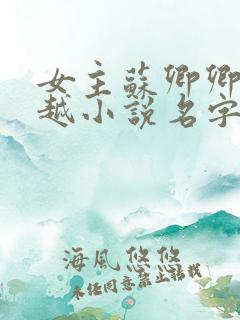 女主蘇卿卿
越小說名字
海風悠悠
未經同意禁止轉載